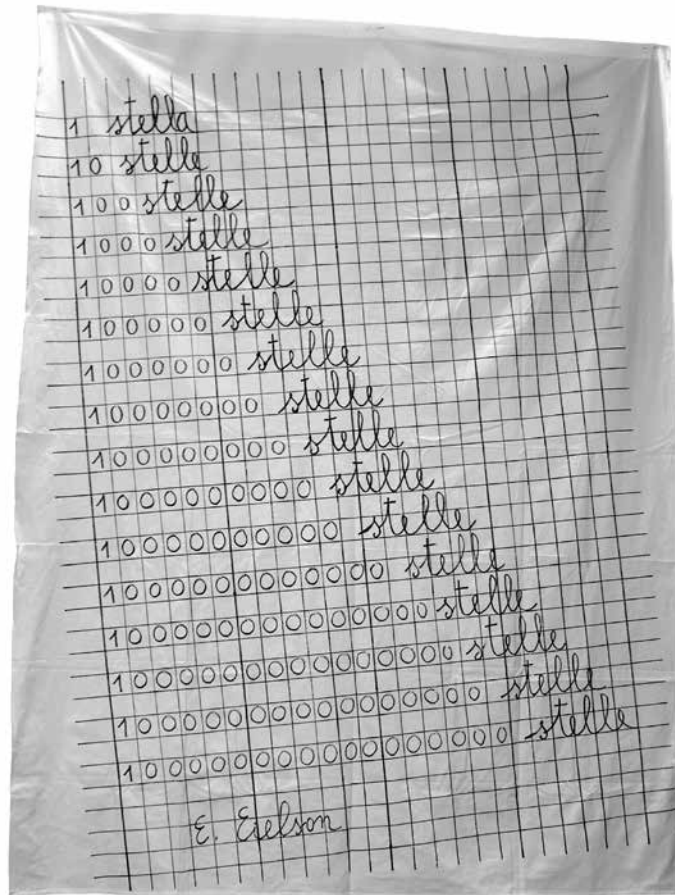 1 stella
10 stelle
100 stelle
1000 stelle
10000 stelle
100000 stelle
1000000 stelle
10000000 stelle
100000000 stelle
1000000000 stelle
10000000000 stelle
1000000000000 stelle
100000000000000 stelle
1000000000000000 stelle
10000000000000000 stelle
100000000000000000 stelle
E. Eielson